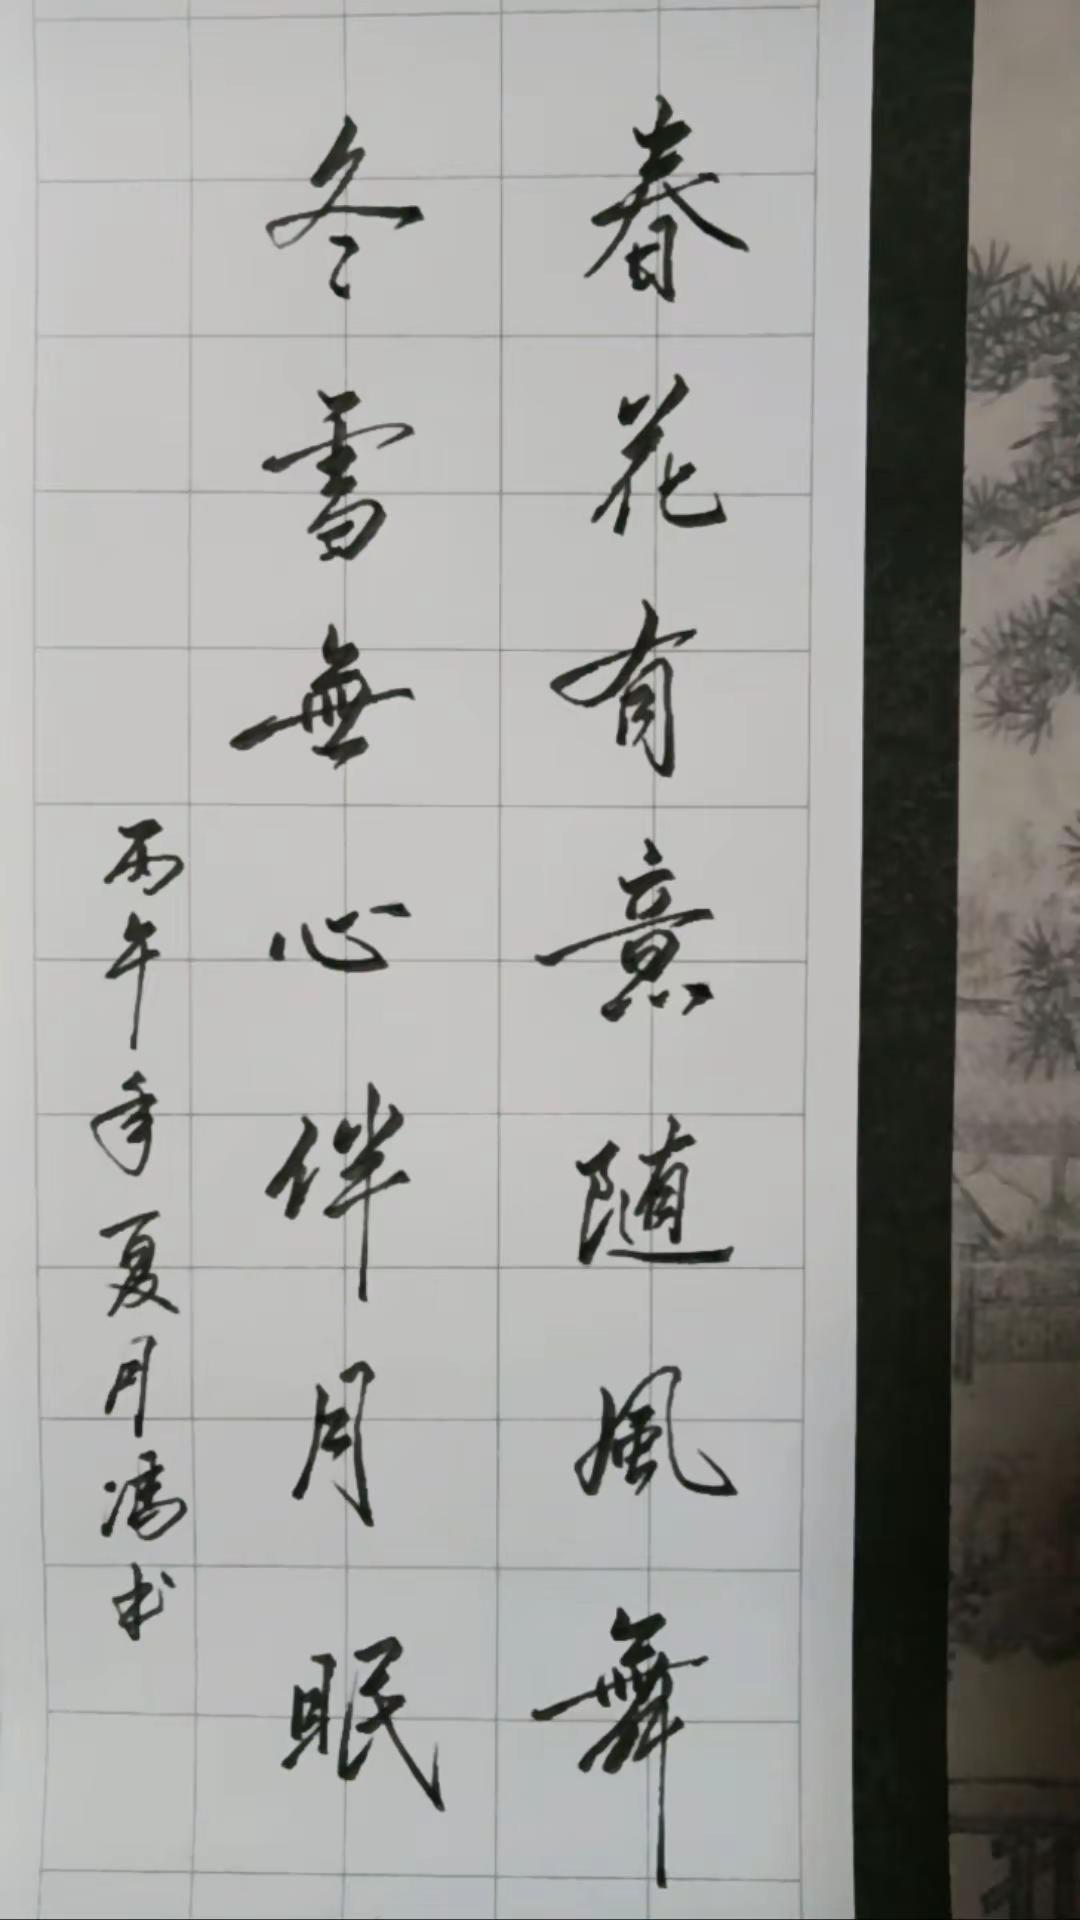 春花有意随風舞
冬雪無心伴月眠
丙午年夏月馮书